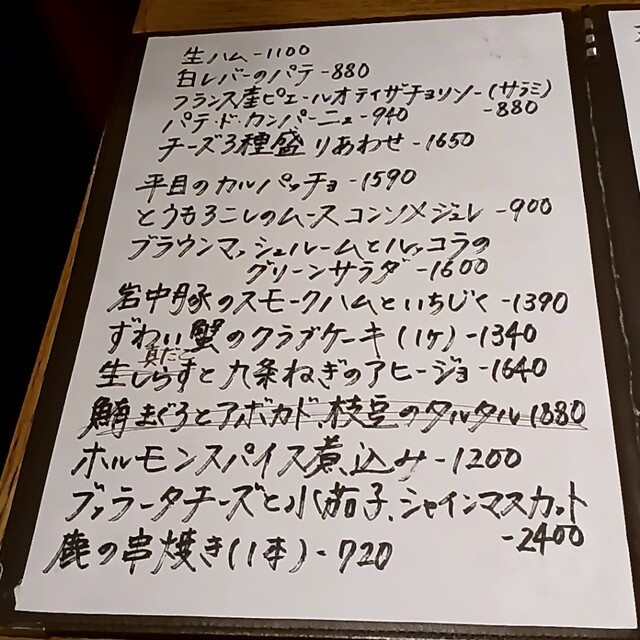 生ハム-1100
白レバーのパテ-880
フランス産ピエールオテイザチョリソー(サラミ)
-880
パテ・ド・カンパーニュ-940
チーズ3種盛りあわせ-1650
平目のカルパッチョ-1590
とうもろこしのムースコンソメジュレ-900
ブラウンマッシュルームとルッコラの
グリーンサラダ-1600
岩中豚のスモークハムといちじく-1390
ずわい蟹のクラブケーキ(1ヶ)-1340
真だこ
生しらすと九条ねぎのアヒージョ-1640
鮪まぐろとアボカド、枝豆のタルタル1880
ホルモンスパイス煮込み-1200
ブッラータチーズと水茄子、シャインマスカット
-2400
鹿の串焼き(1本)-720